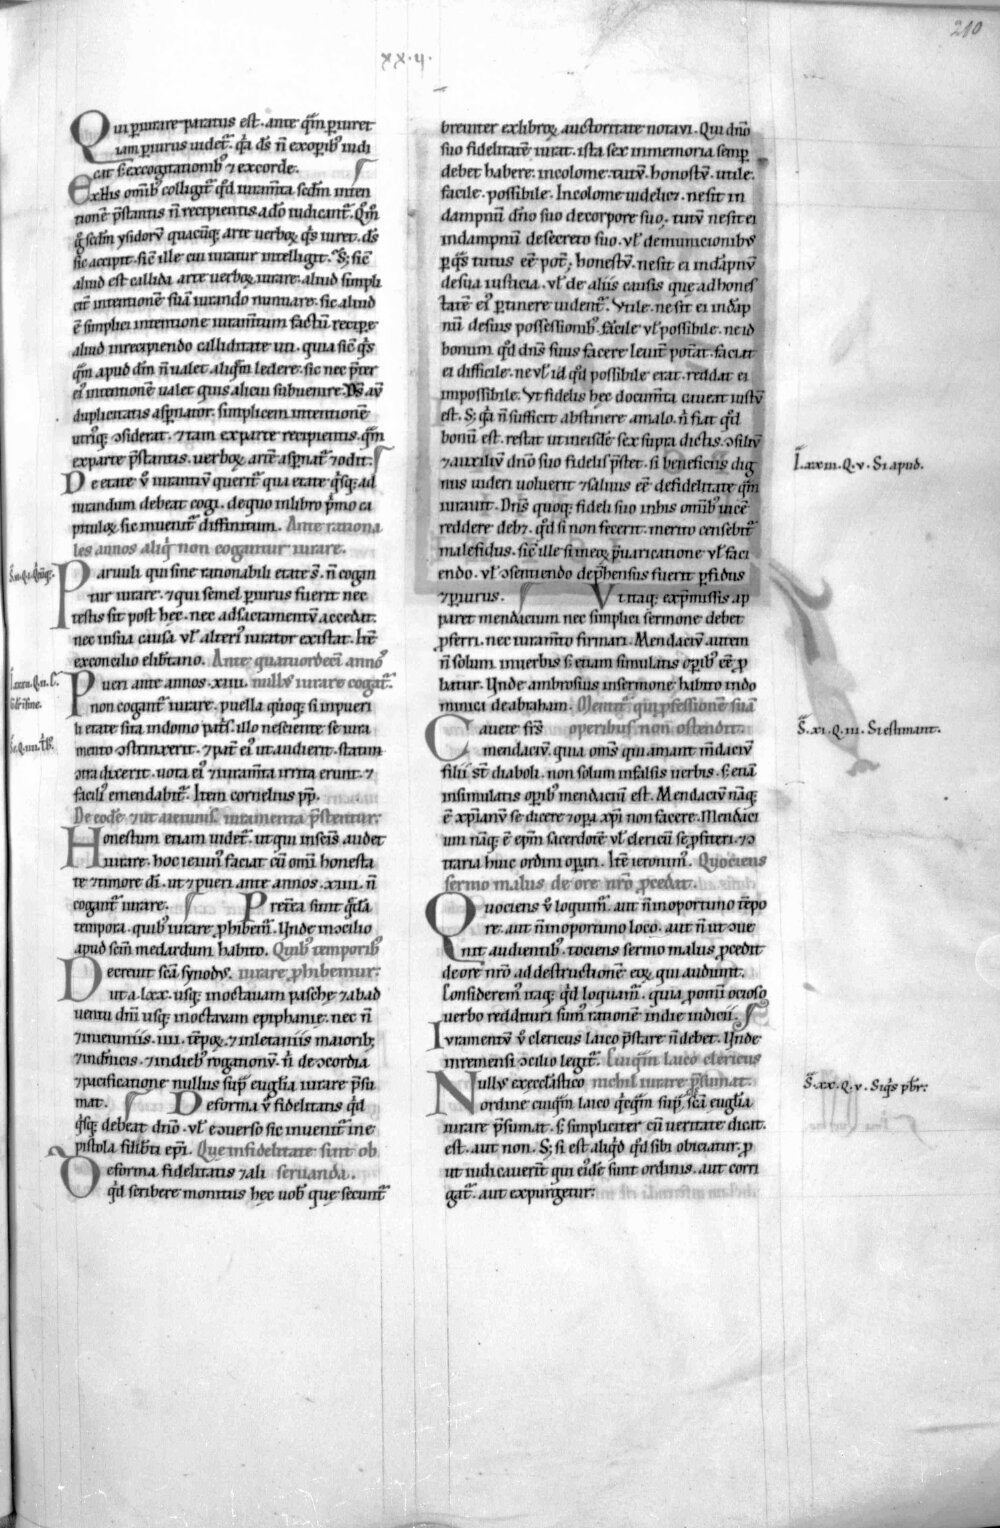 210
xx.ii.
Qui p̄iurare paratus est. ante q̄m p̄iuret
iam p̄iurus uidet᷑. q̇a ds̄ n̄ ex op̄ib᷒ iudi
cat s; ex cogitationib᷒ ⁊ ex corde.
Ex his om̄ib᷒ colligit᷑ q̄d iuram̄ta sc̄dm inten
tionē p̄stantis n̄ recipientis a dō iudicant᷑. Qm̄
ḡ sc̄dm ysidorū quacūq; arte uerboꝝ q̇s iuret. ds̄
sic accipit. sic̄ ille cui iuratur intelligit. S; sic̄
aliud est callida arte uerboꝝ iurare. aliud simpli
cit̄ intentionē suā iurando nuntiare. sic aliud
ē simplici intentione iuram̄tum factū recipe
aliud in recipiendo calliditate uti. quia sic̄ q̇s
q̄m apud dm̄ n̄ ualet aliq̄m ledere. sic nec p̄ter
ei᷒ intentionē ualet quis alicui subuenire. Ds̄ aū
duplicitatis asp̄nator. simplicem intentionē
utriq; ɔsiderat. ⁊ tam ex parte recipientis. q̄m
ex parte p̄stantis. uerboꝝ artē asp̄nat᷑ ⁊ odit.
De etate ū iurantiū querit᷑ qua etate q̇sq; ad
iurandum debeat cogi. de quo in libro p̄mo ca
pituloꝝ. sic inuenit᷑ diffinitum. Ante rationa
les annos aliq̇ non cogantur iurare.
Paruuli qui sine rationabili etate s̄. n̄ cogan
tur iurare. ⁊ qui semel p̄iurus fuerit nec
testis sit post hec. nec ad sacramentū accedat.
nec in sua causa ul̄ alteri᷒ iurator existat. Itē
ex concilio elib̄tano. Ante quatuordecī anno᷒
Pueri ante annos .xiiii. nullus iurare cogat᷑.
non cogant᷑ iurare. puella quoq; si in pueri
li etate sita in domo pat̄s. illo nesciente se iura
mento ɔstrinxerit. ⁊ pat̄ ei᷒ ut audierit statim
ɔtradixerit. uota ei᷒ ⁊ iuram̄ta irrita erunt. ⁊
facili᷒ emendabit᷑. Item cornelius pp̄.
De eodē ⁊ ut a ieiunis iuramenta p̄stentur.
Honestum etiam uidet᷑. ut qui in sc̄is audet
iurare. hoc ieiun᷒ faciat cū omī honesta
te ⁊ timore dī. ut ⁊ pueri ante annos .xiiii. n̄
cogant᷑ iurare. Pretēa sunt q̄dā
tempora. quib᷒ iurare p̄hibem̄. Unde in ɔcilio
apud scm̄ medardum habito. Quib᷒ temporib᷒
Decreuit scā synodus. iurare p̄hibemur.
ut a .lxx. usq; in octauam pasche ⁊ ab ad
uentu dnī usq; in octauam epiphanie. nec n̄
⁊ in ieiuniis .iiii. tēpoꝝ. ⁊ in letaniis maiorib;
⁊ in dn̄icis. ⁊ in dieb᷒ rogationū. n̄ de ɔcordia
⁊ pacificatione nullus sup̄ eugl̄ia iurare p̄su
mat. De forma ū fidelitatis q̄d
q̇sq; debeat dn̄o. ul̄ e ɔuerso sic inuenit᷑ in e
pistola filib̄ti ep̄i. Que in fidelitate sint ob
De forma fidelitatis ⁊ ali seruanda.
q̄d scribere monitus hec uob᷒ que secunt᷑
breuiter ex libroꝝ auctoritate notaui. Qui dn̄o
suo fidelitatē iurat. ista sex in memoria semp̄
debet habere. incolome. tutū. honestū. utile.
facile. possibile. Incolome uidelicꝫ. ne sit in
dampnū dn̄o suo de corpore suo. tutū ne sit ei
in dampnū de secreto suo. ul̄ de municionib᷒
p̄ q̄s tutus eē pot̄. honestū. ne sit ei in dāpnū
de sua iusticia. ul̄ de aliis causis que ad hones
tatē ei᷒ p̄tinere uident᷑. Vtile. ne sit ei in dāp
nū de suis possessionib᷒. facile ul̄ possibile. ne id
bonum q̄d dn̄s suus facere leuit̄ pot̄at. faciat
ei difficile. ne ul̄ id q̄d possibile erat. reddat ei
impossibile. Vt fidelis hec docum̄ta caueat iustū
est. S; q̇a n̄ sufficit abstinere a malo. n̄ fiat q̄d
bonū est. restat ut in eisdē sex supra dictis. ɔsiliū
⁊ auxiliū dn̄o suo fidelis p̄stet. si beneficiis dig
nus uideri uoluerit ⁊ saluus eē de fidelitate q̄m
iurauit. Dn̄s quoq; fideli suo in his om̄ib᷒ uicē
reddere debꝫ. q̄d si non fecerit. merito censebit᷑
malefidus. sic̄ ille si in eoꝝ p̄uaricatione ul̄ faci
endo. ul̄ ɔsentiendo dep̄hensus fuerit p̄fidus
⁊ p̄iurus. Vt itaq; ex p̄missis ap
paret mendacium nec simplici sermone debet
p̄ferri. nec iuram̄to firmari. Mendaciū autem
n̄ solum in uerbis s; etiam simulatis op̄ib᷒ eē p̄
batur. Unde ambrosius in sermone habito in do
minica de abraham. Mentit᷑ qui p̄fessionē suā
Cauete frs̄ operibus non ostendit.
mendaciū. quia om̄s qui amant m̄daciū
filii s̄t diaboli. non solum in falsis uerbis. s; etiā
in simulatis op̄ib᷒ mendaciū est. Mendaciū nāq;
ē xp̄ianū se dicere ⁊ op̄a xp̄i non facere. Mendaci
um nāq; ē ep̄m sacerdotē ul̄ clericū se p̄fiteri. ⁊ ɔ
traria huic ordini op̄ari. Itē ieronim᷒. Quociens
sermo malus de ore nr̄o p̄cedat.
Quociens ū loquim̄. aut n̄ in oportuno tēpo
re. aut n̄ in oportuno loco. aut n̄ ut ɔue
nit audientib᷒. tociens sermo malus p̄cedit
de ore nr̄o ad destructionē eoꝝ qui audiunt.
Considerem᷒ itaq; q̄d loquam᷑. quia p̄ omī ocioso
uerbo reddituri sum᷒ rationē in die iudicii.
Iuramentū ū clericus laico p̄stare n̄ debet. Unde
in remensi ɔcilio legit᷑. Cuiq̄m laico clericus
Nullus ex eccl̄iastico nichil iurare p̄sumat.
ordine cuiq̄m laico q̄cq̄m sup̄ scā eugl̄ia
iurare p̄sumat. s; simpliciter cū ueritate dicat.
est. aut non. S; si est aliq̄d q̄d sibi obiciatur. p̄
ut iudicauerit qui ei᷒dē sunt ordinis. aut corri
gat᷑. aut expurgetur.
I. xxiii. Q. v. Si apud.
S̄. xi. Q. iii. S estimant.
S̄. xx. Q. v. Siq̇s pb̄r.